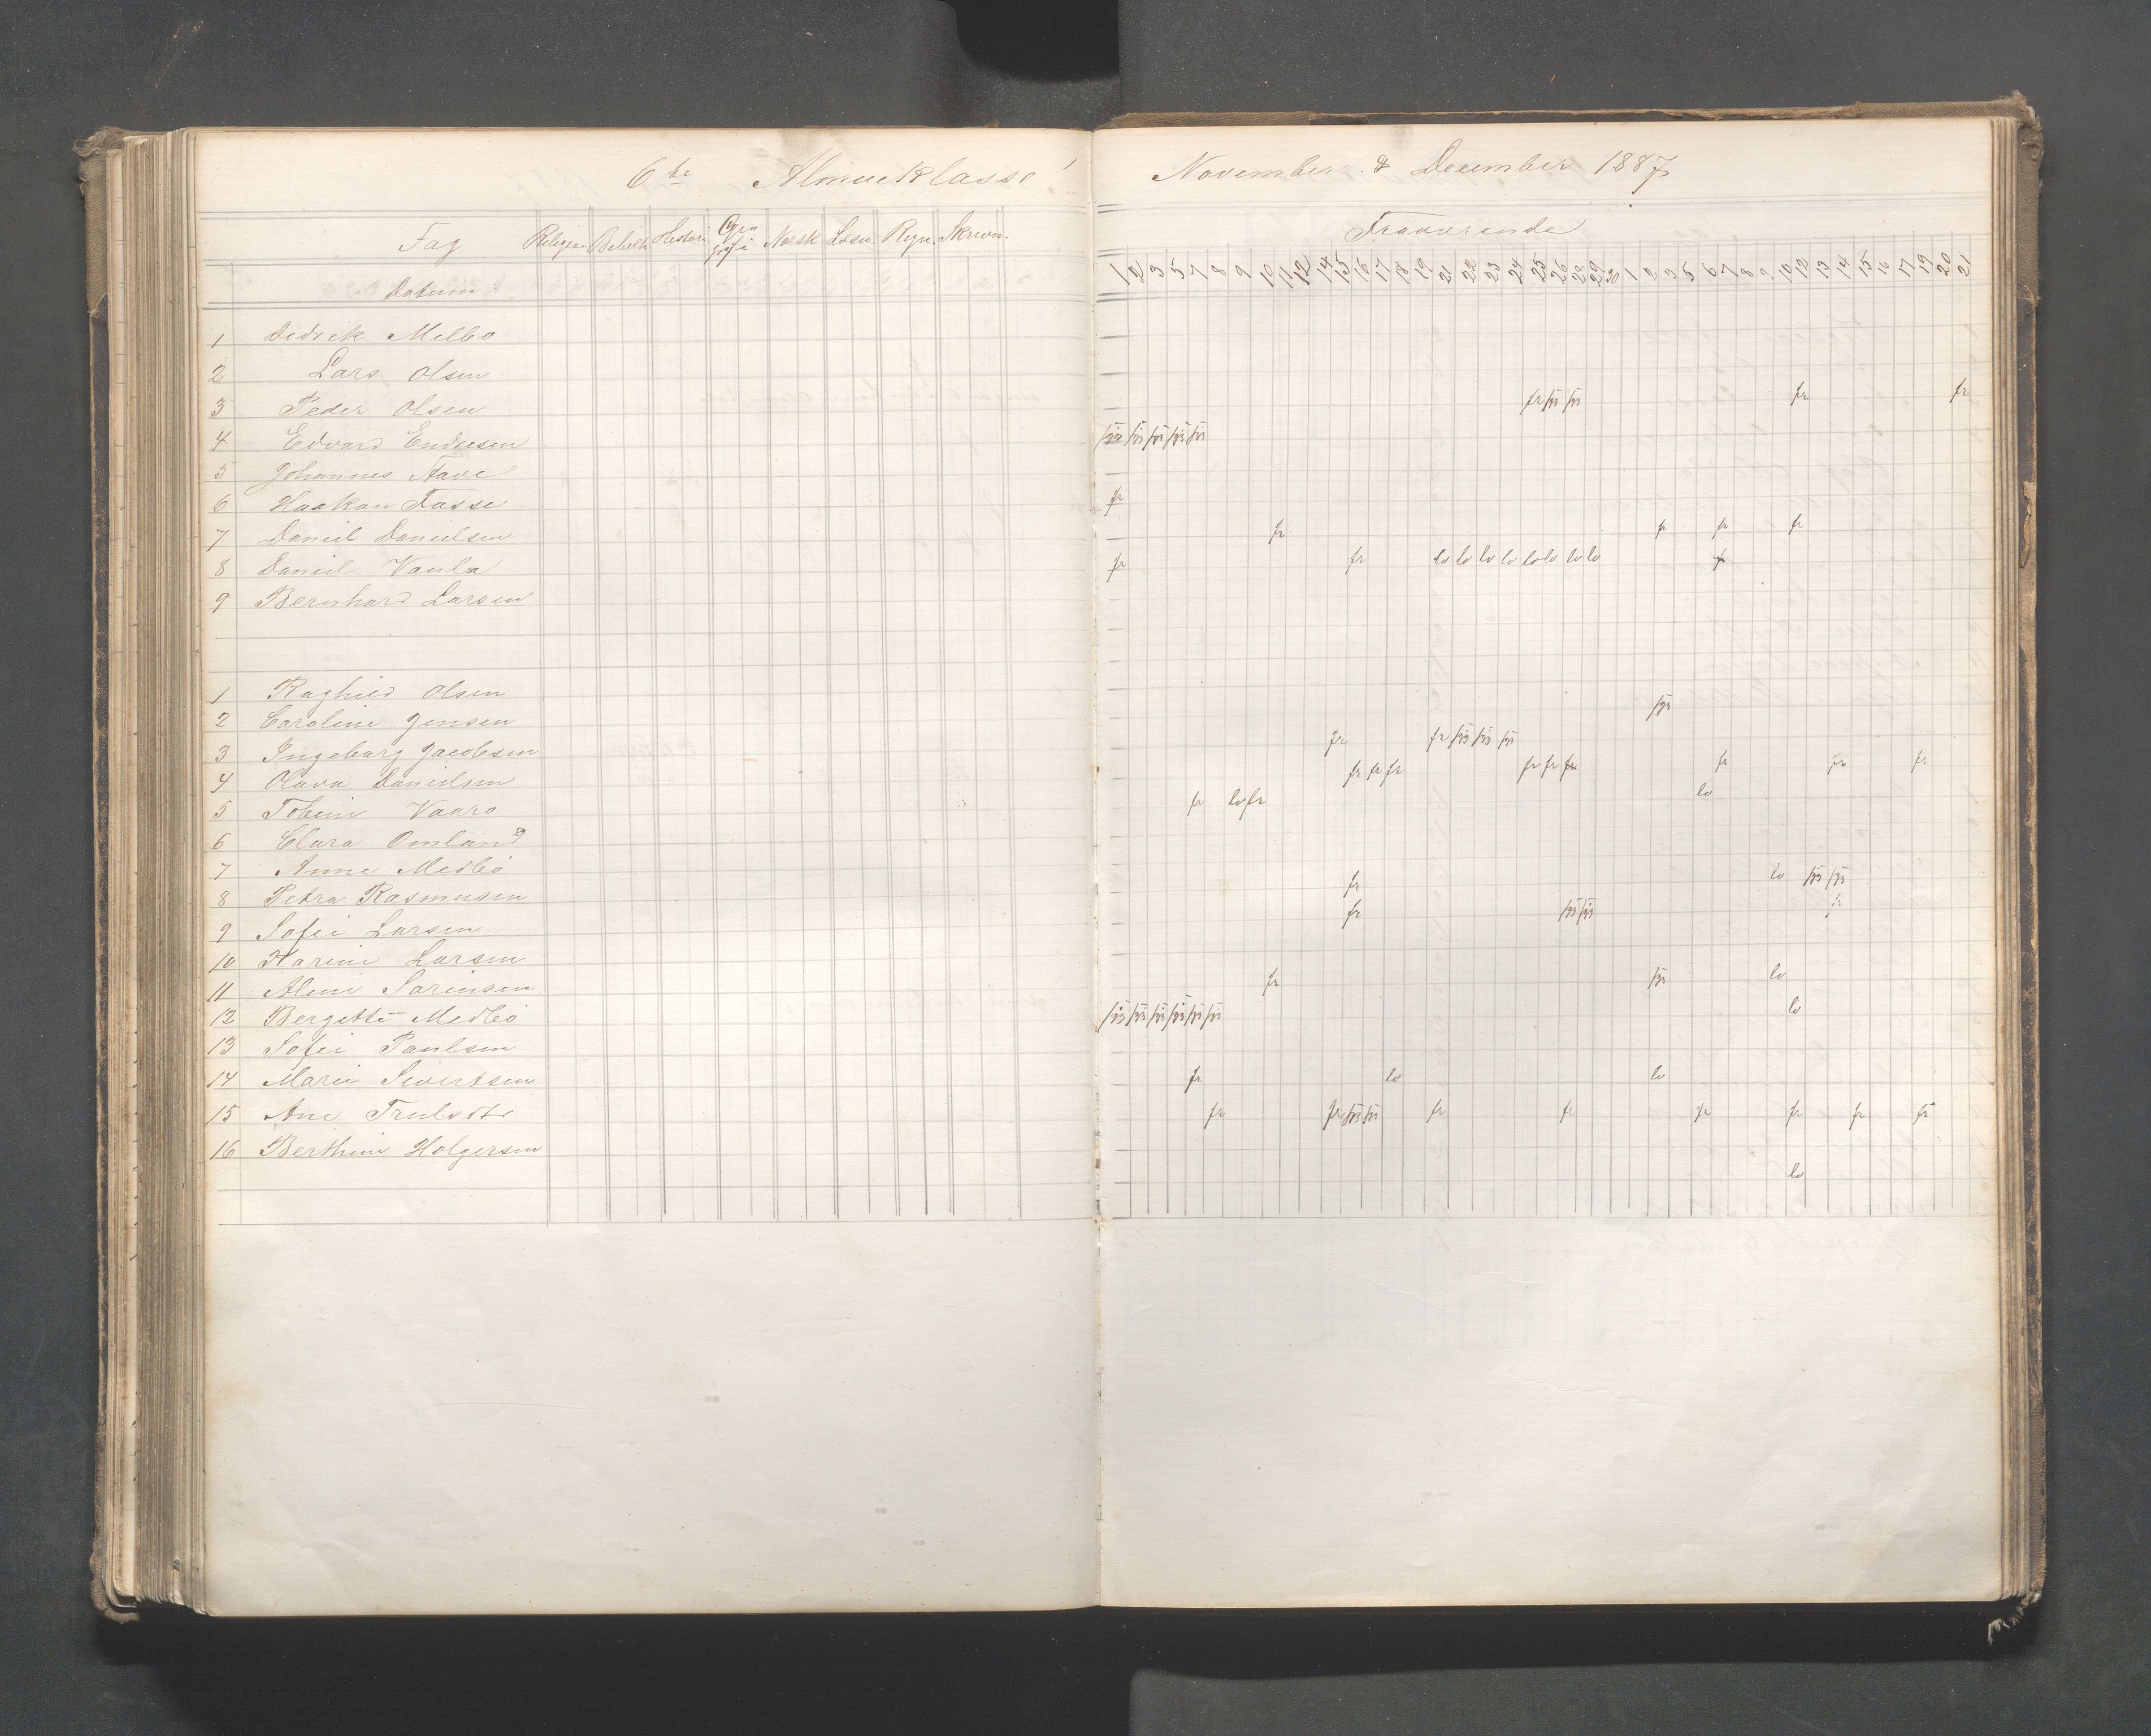 6te Almueklasse
Fag Religion Bibelh. Histori Geografi Norsk Læsn. Regn. Skrivn.
Datum
1 Didrik Melbo
2 Lars Olsen
3 Peder Olsen
4 Edvard Endresen
5 Johannes
6 Haakon Tasse
7 Daniel Danielsen
8 Daniel Vaula
9 Bernhard Larsen
1 Raghild Olsen
2 Caroline Jensen
3 Ingeborg Jacobsen
4 Olava Danielsen
5 Tobine
6 Clara Omland
7 Anne Medbö
8 Petra Rasmusen
9 Sofie Larsen
10 Larsen
11 Aline Sörinsen
12 Bergette Medbö
13 Sofie Paulsen
14 Marie Sivertsen
15 Ane
16 Berthine Holgersen
November & December 1887
Fraværende
1 2 3 5 7 8 9 10 11 12 14 15 16 17 18 19 21 22 23 24 25 26 28 29 30 1 2 3 5 6 7 8 9 10 12 13 14 15 16 17 19 20 21
fr sys sys fr fr
sys sys sys sys sys
fr
fr fr fr fr
fr fr lo lo lo lo lo lo lo lo
sys
fr fr sys sys sys
fr fr fr fr fr fr fr fr fr
fr lo fr lo
fr lo sys sys
fr sys sys fr
fr sys lo
sys sys sys sys sys sys lo
fr lo lo
fr fr sys sys fr fr fr fr fr fr
lo